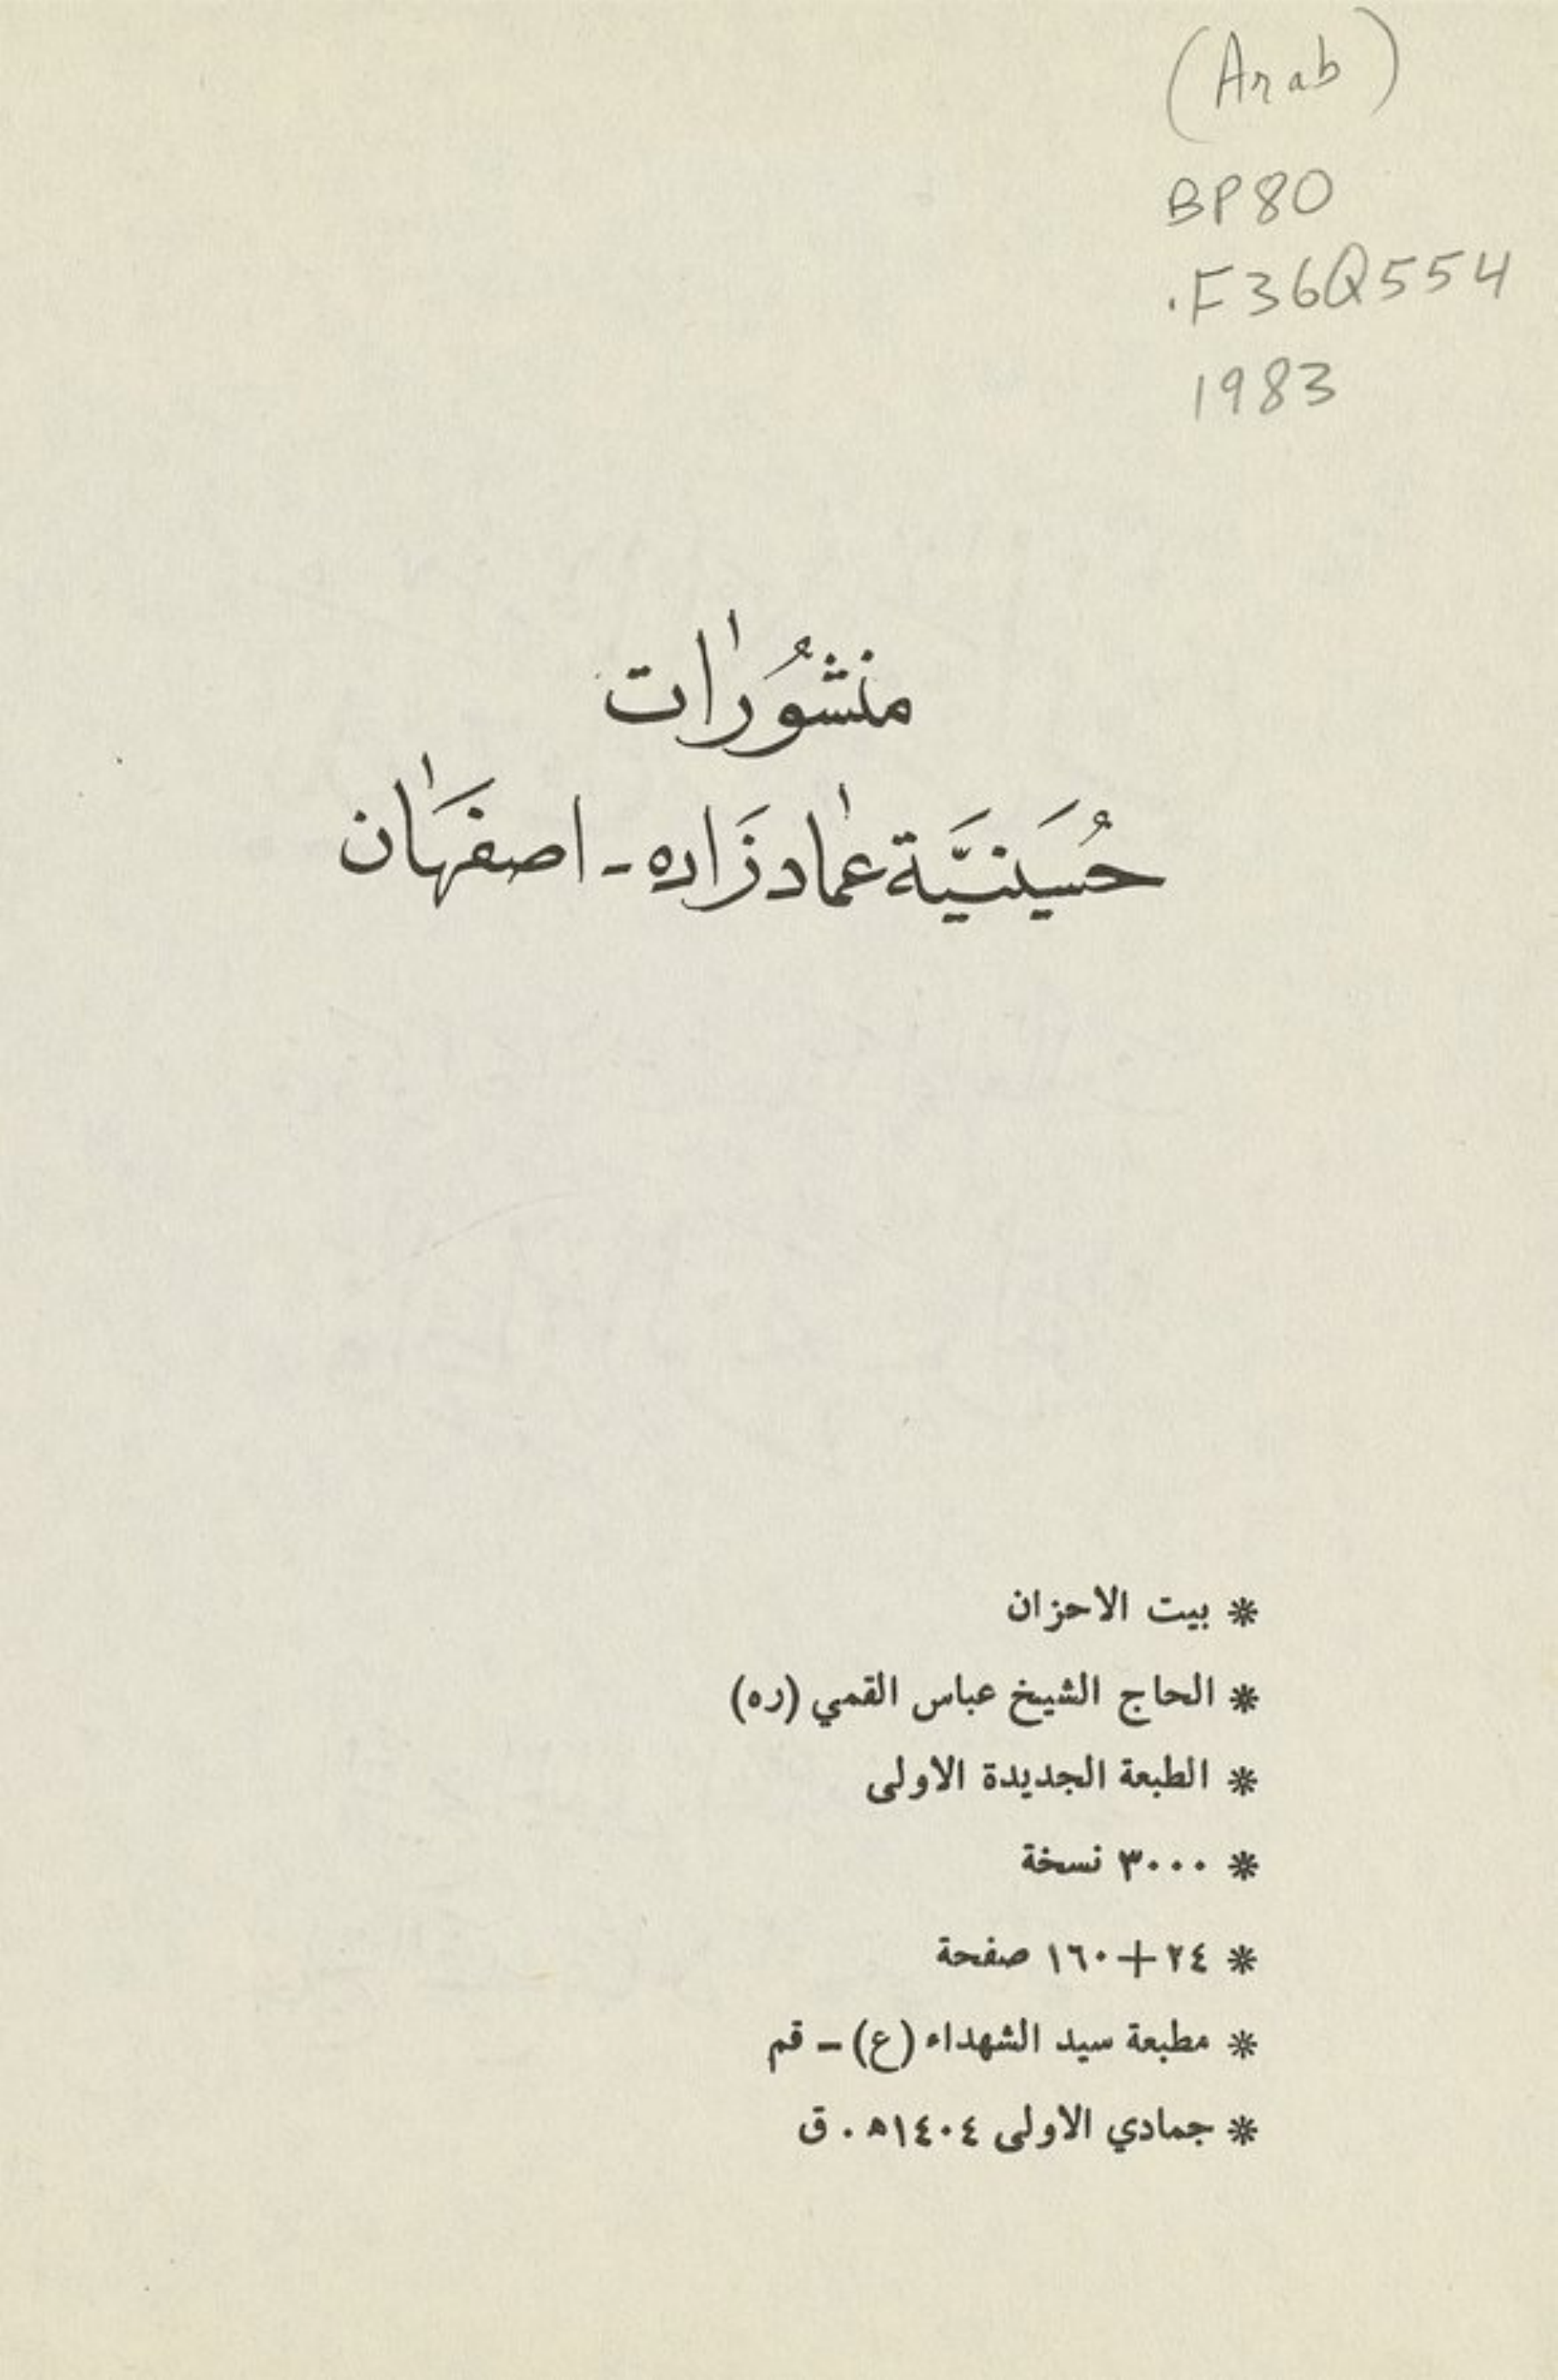 (Arab)
BP80
.F36Q554
1983
منشُورات
حُسَينيَّة عماد زَاده - اصفهَان
* بيت الاحزان
* الحاج الشيخ عباس القمي (ره)
* الطبعة الجديدة الاولى
* ٣٠٠٠ نسخة
* ٢٤+١٦٠ صفحة
* مطبعة سيد الشهداء (ع) – قم
* جمادي الاولى ١٤٠٤ه . ق